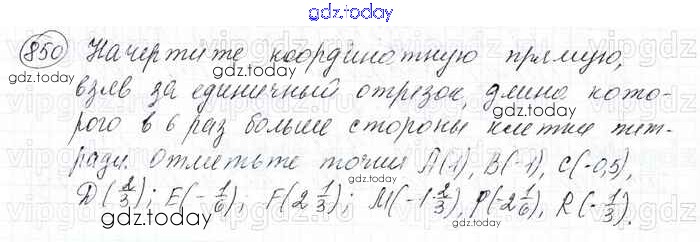 gdz.today
850 Начертите координатную прямую,
gdz.today
взяв за единичный отрезок, длина кото-
рого в 6 раз больше стороны клетки тет-
ради. Отметьте точки A(1), B(-1), C(-0,5),
D(2/3); E(-1/6); F(2 1/3); M(-1 2/3), P(-2 1/6), R(-1/3).
gdz.today